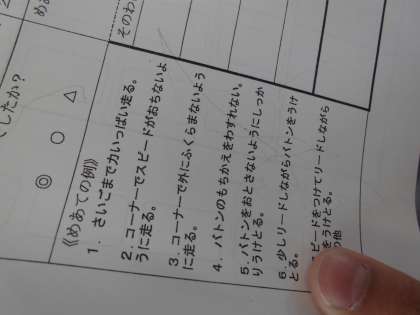 くしたか?
◎ ○ △
そのわ
《めあての例》
1. さいごまで力いっぱい走る。
2. コーナーでスピードがおちないよ
うに走る。
3. コーナーで外にふくらまないよう
に走る。
4. バトンのもちかえをわすれない。
5. バトンをおとさないようにしっか
りうけとる。
6. 少しリードしながらバトンをうけ
とる。
ピードをつけてリードしながら
をうけとる。
の他